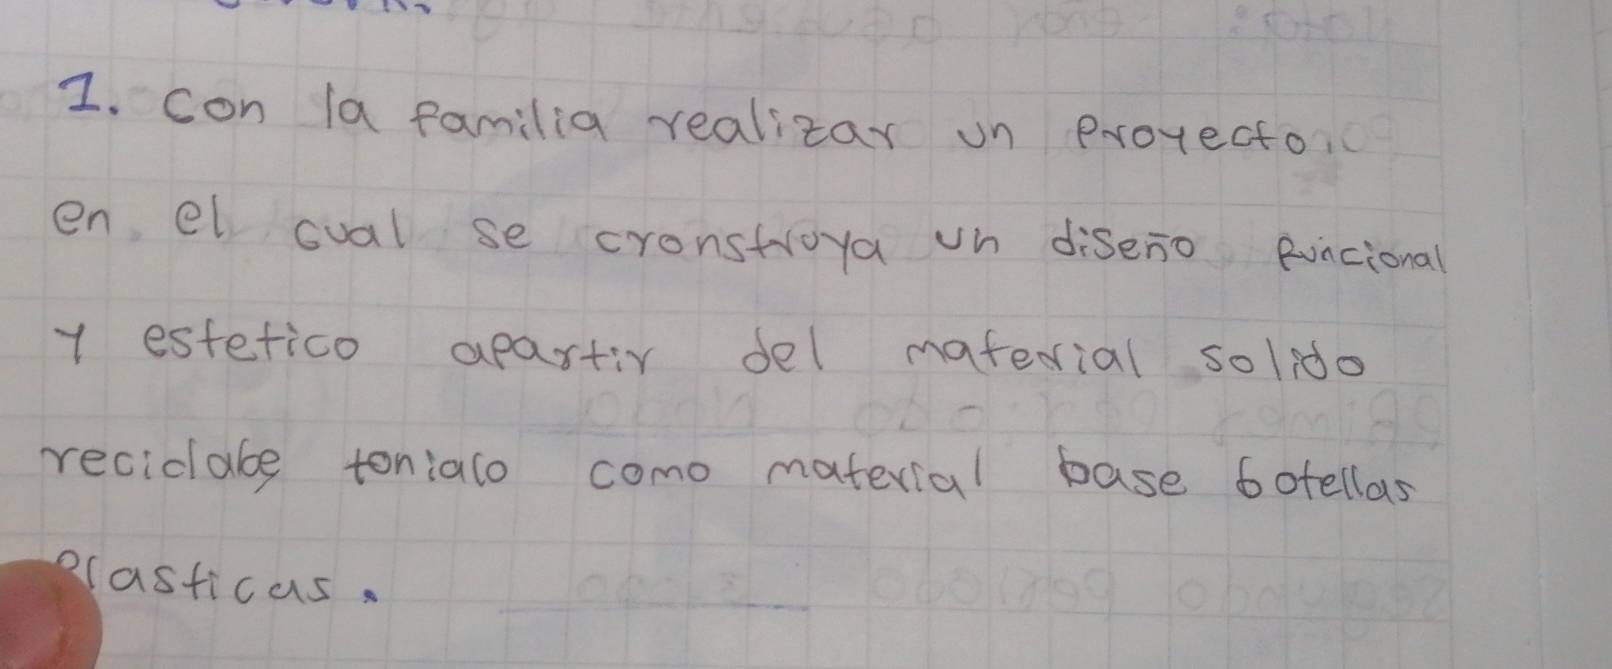 1. Con la familia realizar un Proyecto
en el cual se cronstruya un diseño funcional
y estetico apartir del material solido
reciclabe toniaco como material base botellas
Plasticas.